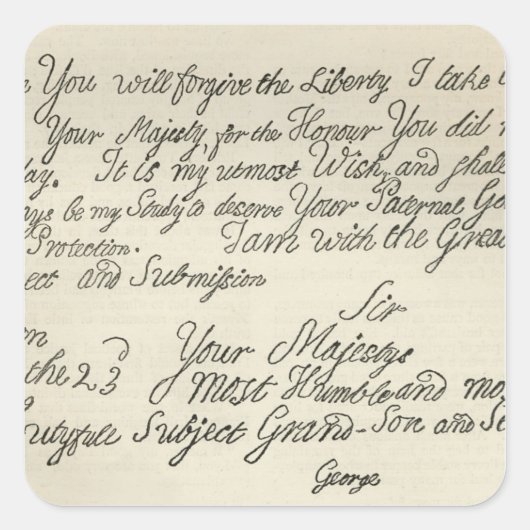 You will forgive the Liberty I take
Your Majesty, for the Honour You did
ay. It is my utmost Wish, and shall
ays be my Study to deserve Your Paternal Go
Protection. I am with the Grea
ect and Submission
Sir
Your Majestys
the 23
most Humble and mo
utyfull Subject Grand-Son and Se
George